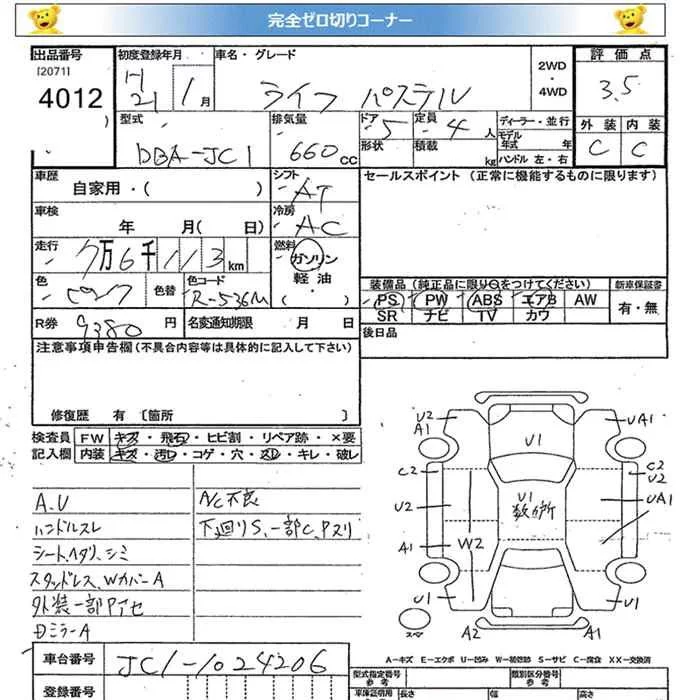 完全ゼロ切りコーナー
出品番号 初度登録年月 車名・グレード 2WD・4WD 評価点
[2071]
4012
H21 1月 ライフ パステル 3.5
型式 排気量 ドア 定員 ディーラー・並行 外装 内装
DBA-JC1 660cc 5 4人 モデル年式 年 C C
形状 積載 kg ハンドル 左・右
車歴 シフト セールスポイント(正常に機能するものに限ります)
自家用・( ) AT
車検 冷房
年 月( 日) AC
走行 燃料
7万6千113km ガソリン
軽油
・( )
色 色替 色コード 装備品(純正品に限り○をつけてください) 新車保証書
ピンク R-536M PS PW ABS エアB AW 有・無
SR ナビ TV カワ
R券 9380円 名変通知期限 月 日 後日品
注意事項申告欄(不具合内容等は具体的に記入して下さい)
修復歴 有 [箇所 ]
検査員 FW キズ・飛石・ヒビ割・リペア跡・×要
記入欄 内装 キズ・汚レ・コゲ・穴・スレ・キレ・破レ
A.U A/C不良
ハンドルスレ 下廻りS、一部C、Pスリ
シートヘタリ、シミ
スタッドレス、WカバーA
外装一部Pアセ
DミラーA
U2 A1 U1 UA1
C2 C2 U2
U2 U1 数か所 UA1
A1 W2
U1 U1
スペア A2 A1
A-キズ E-エクボ U-凹み W-補修跡 S-サビ C-腐食 XX-交換済
車台番号 JC1-1024206 型式指定番号 参考 類別区分番号 参考
登録番号 車庫証明用 参考 長さ 幅 高さ